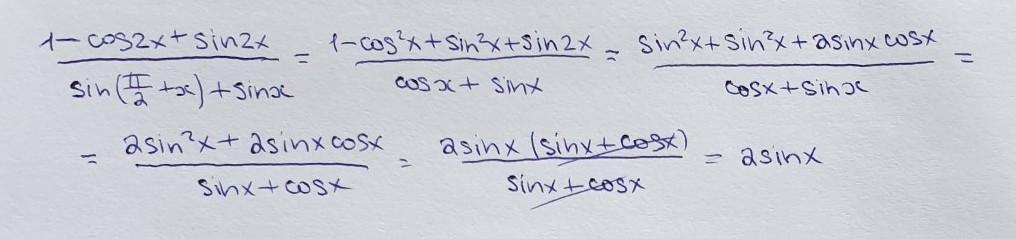 (1-cos2x+sin2x)/(sin(π/2+x)+sinx) = (1-cos²x+sin²x+sin2x)/(cosx+sinx) = (sin²x+sin²x+2sinxcosx)/(cosx+sinx) =
= (2sin²x+2sinxcosx)/(sinx+cosx) = (2sinx(sinx+cosx))/(sinx+cosx) = 2sinx